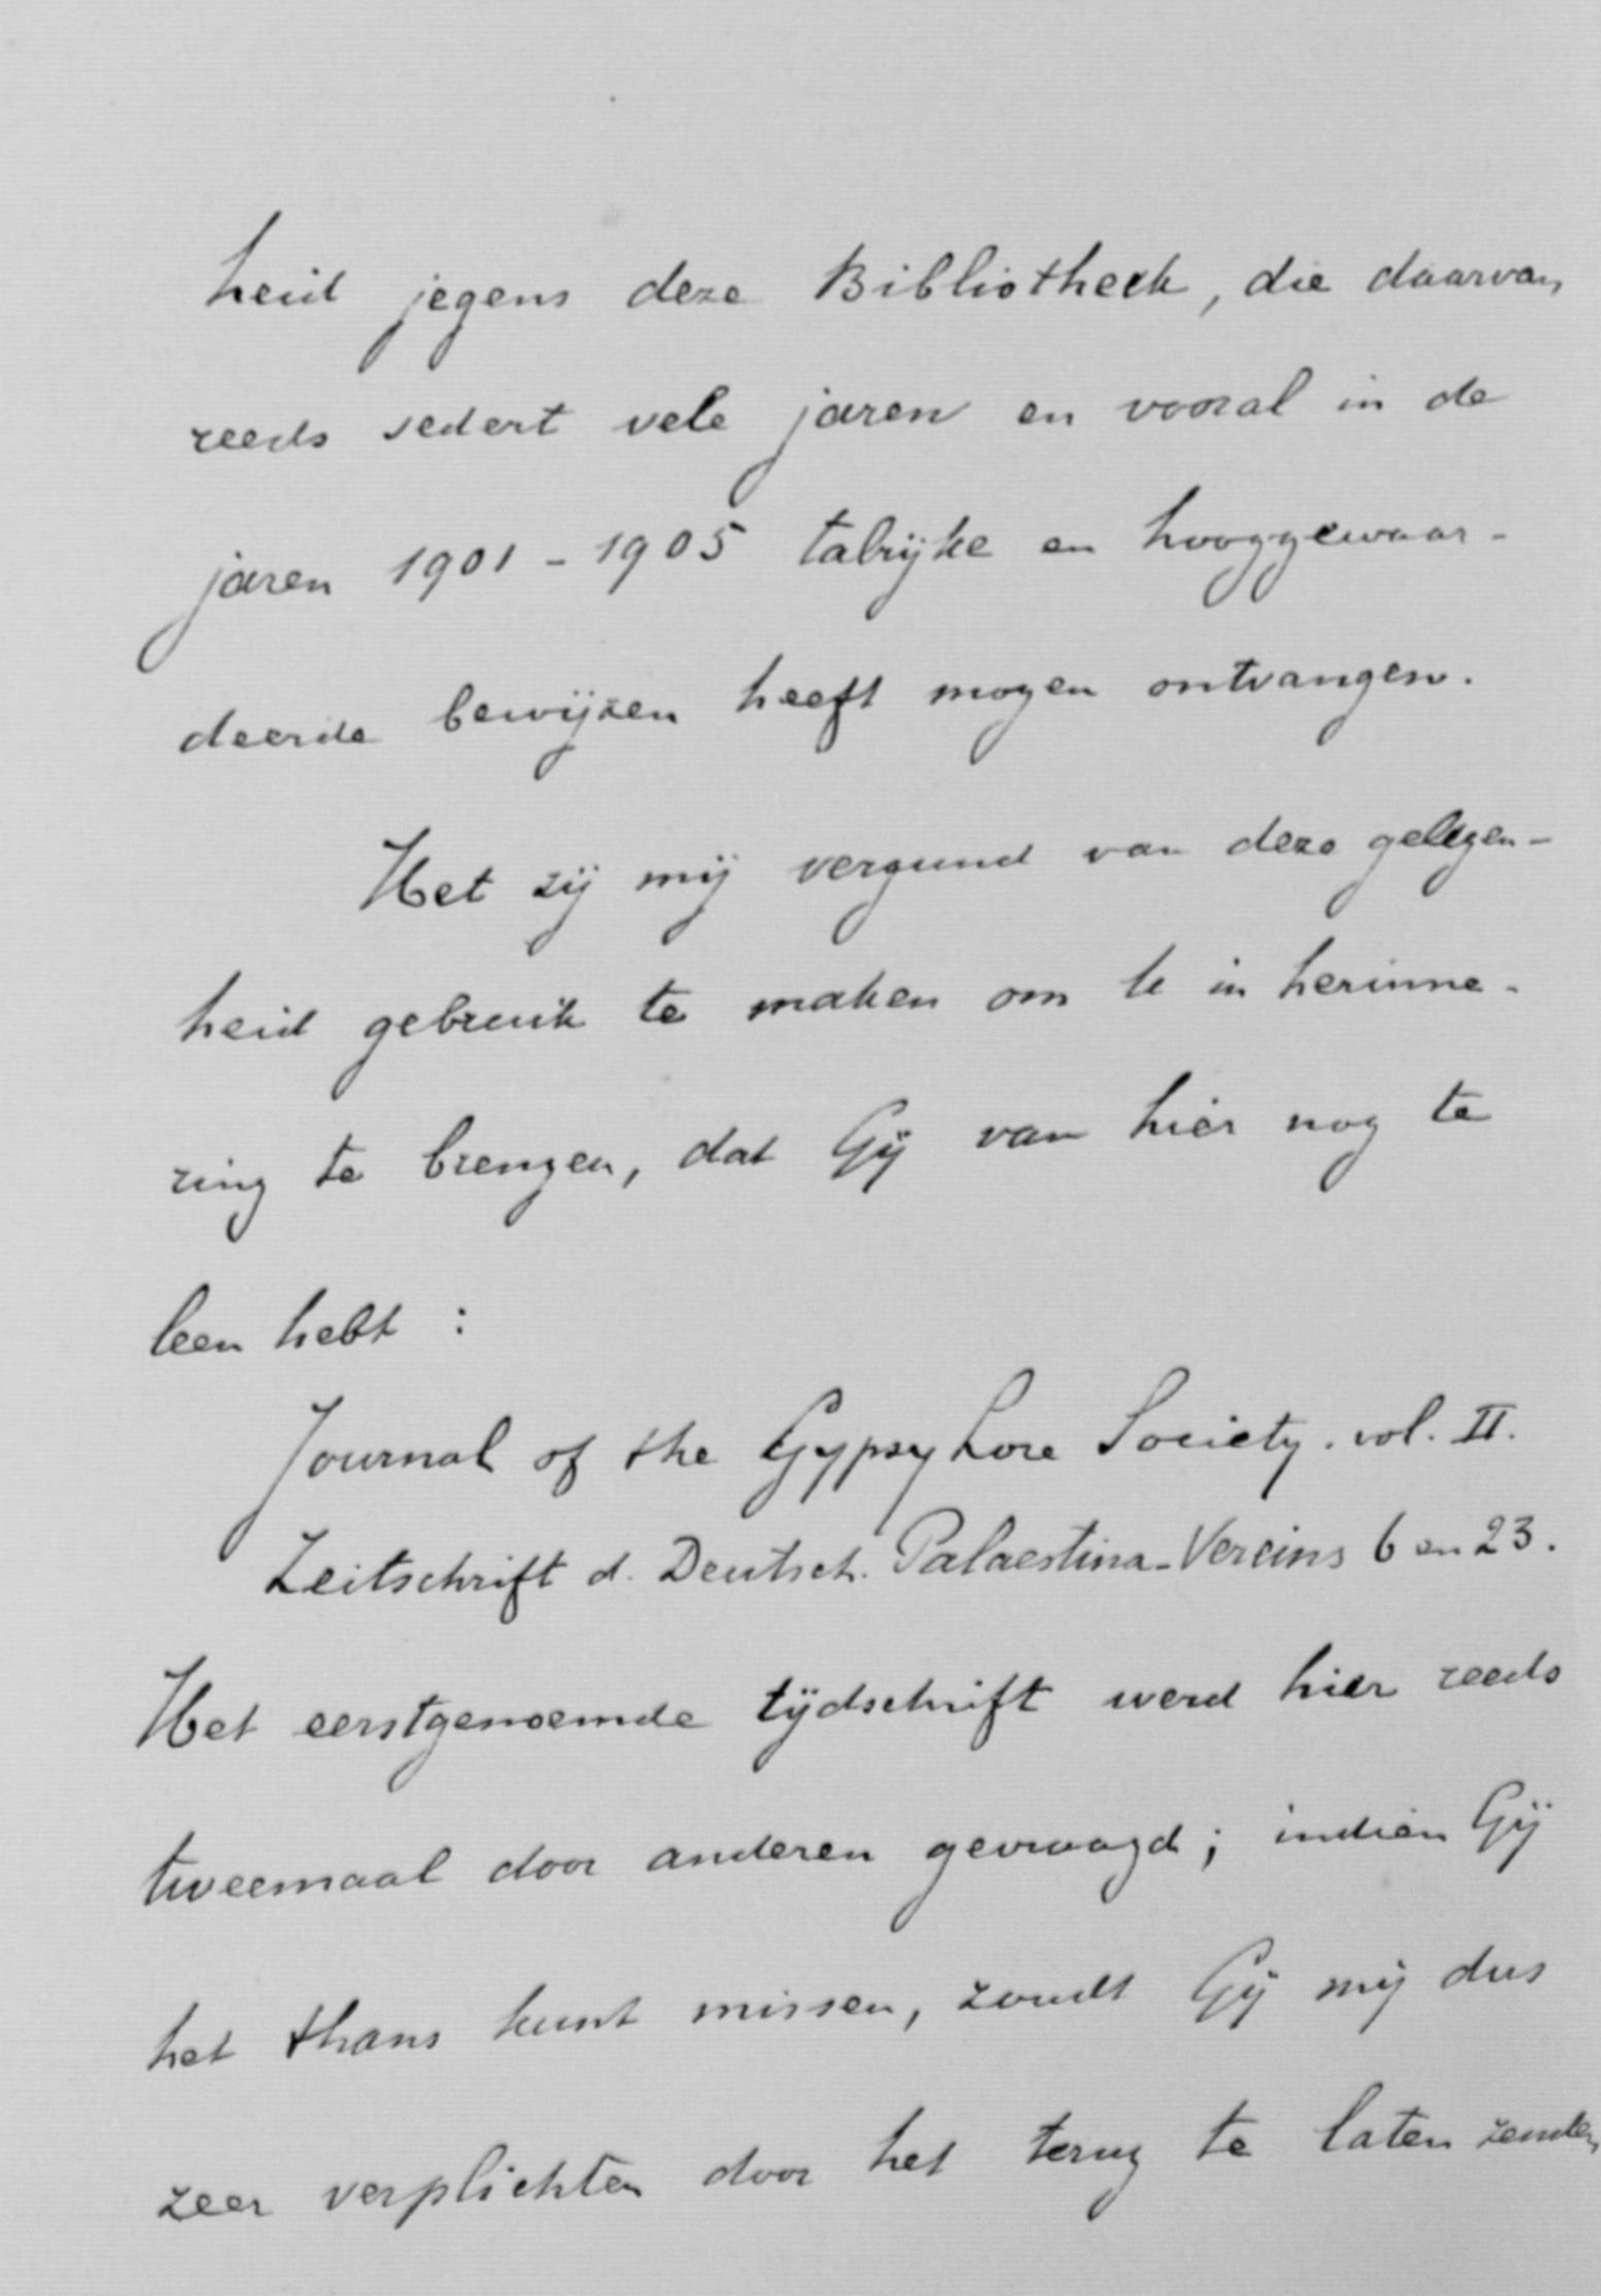 heid jegens deze Bibliotheek, die daarvan
reeds sedert vele jaren en vooral in de
jaren 1901-1905 talrijke en hooggewaar-
deerde bewijzen heeft mogen ontvangen.
Het zij mij vergund van deze gelegen-
heid gebruik te maken om U in herinne-
ring te brengen, dat Gij van hier nog te
leen hebt :
Journal of the Gypsy Lore Society. vol. II.
Zeitschrift d. Deutsch. Palaestina-Vereins 6 en 23.
Het eerstgenoemde tijdschrift werd hier reeds
tweemaal door anderen gevraagd; indien Gij
het thans kunt missen, zoudt Gij mij dus
zeer verplichten door het terug te laten zenden